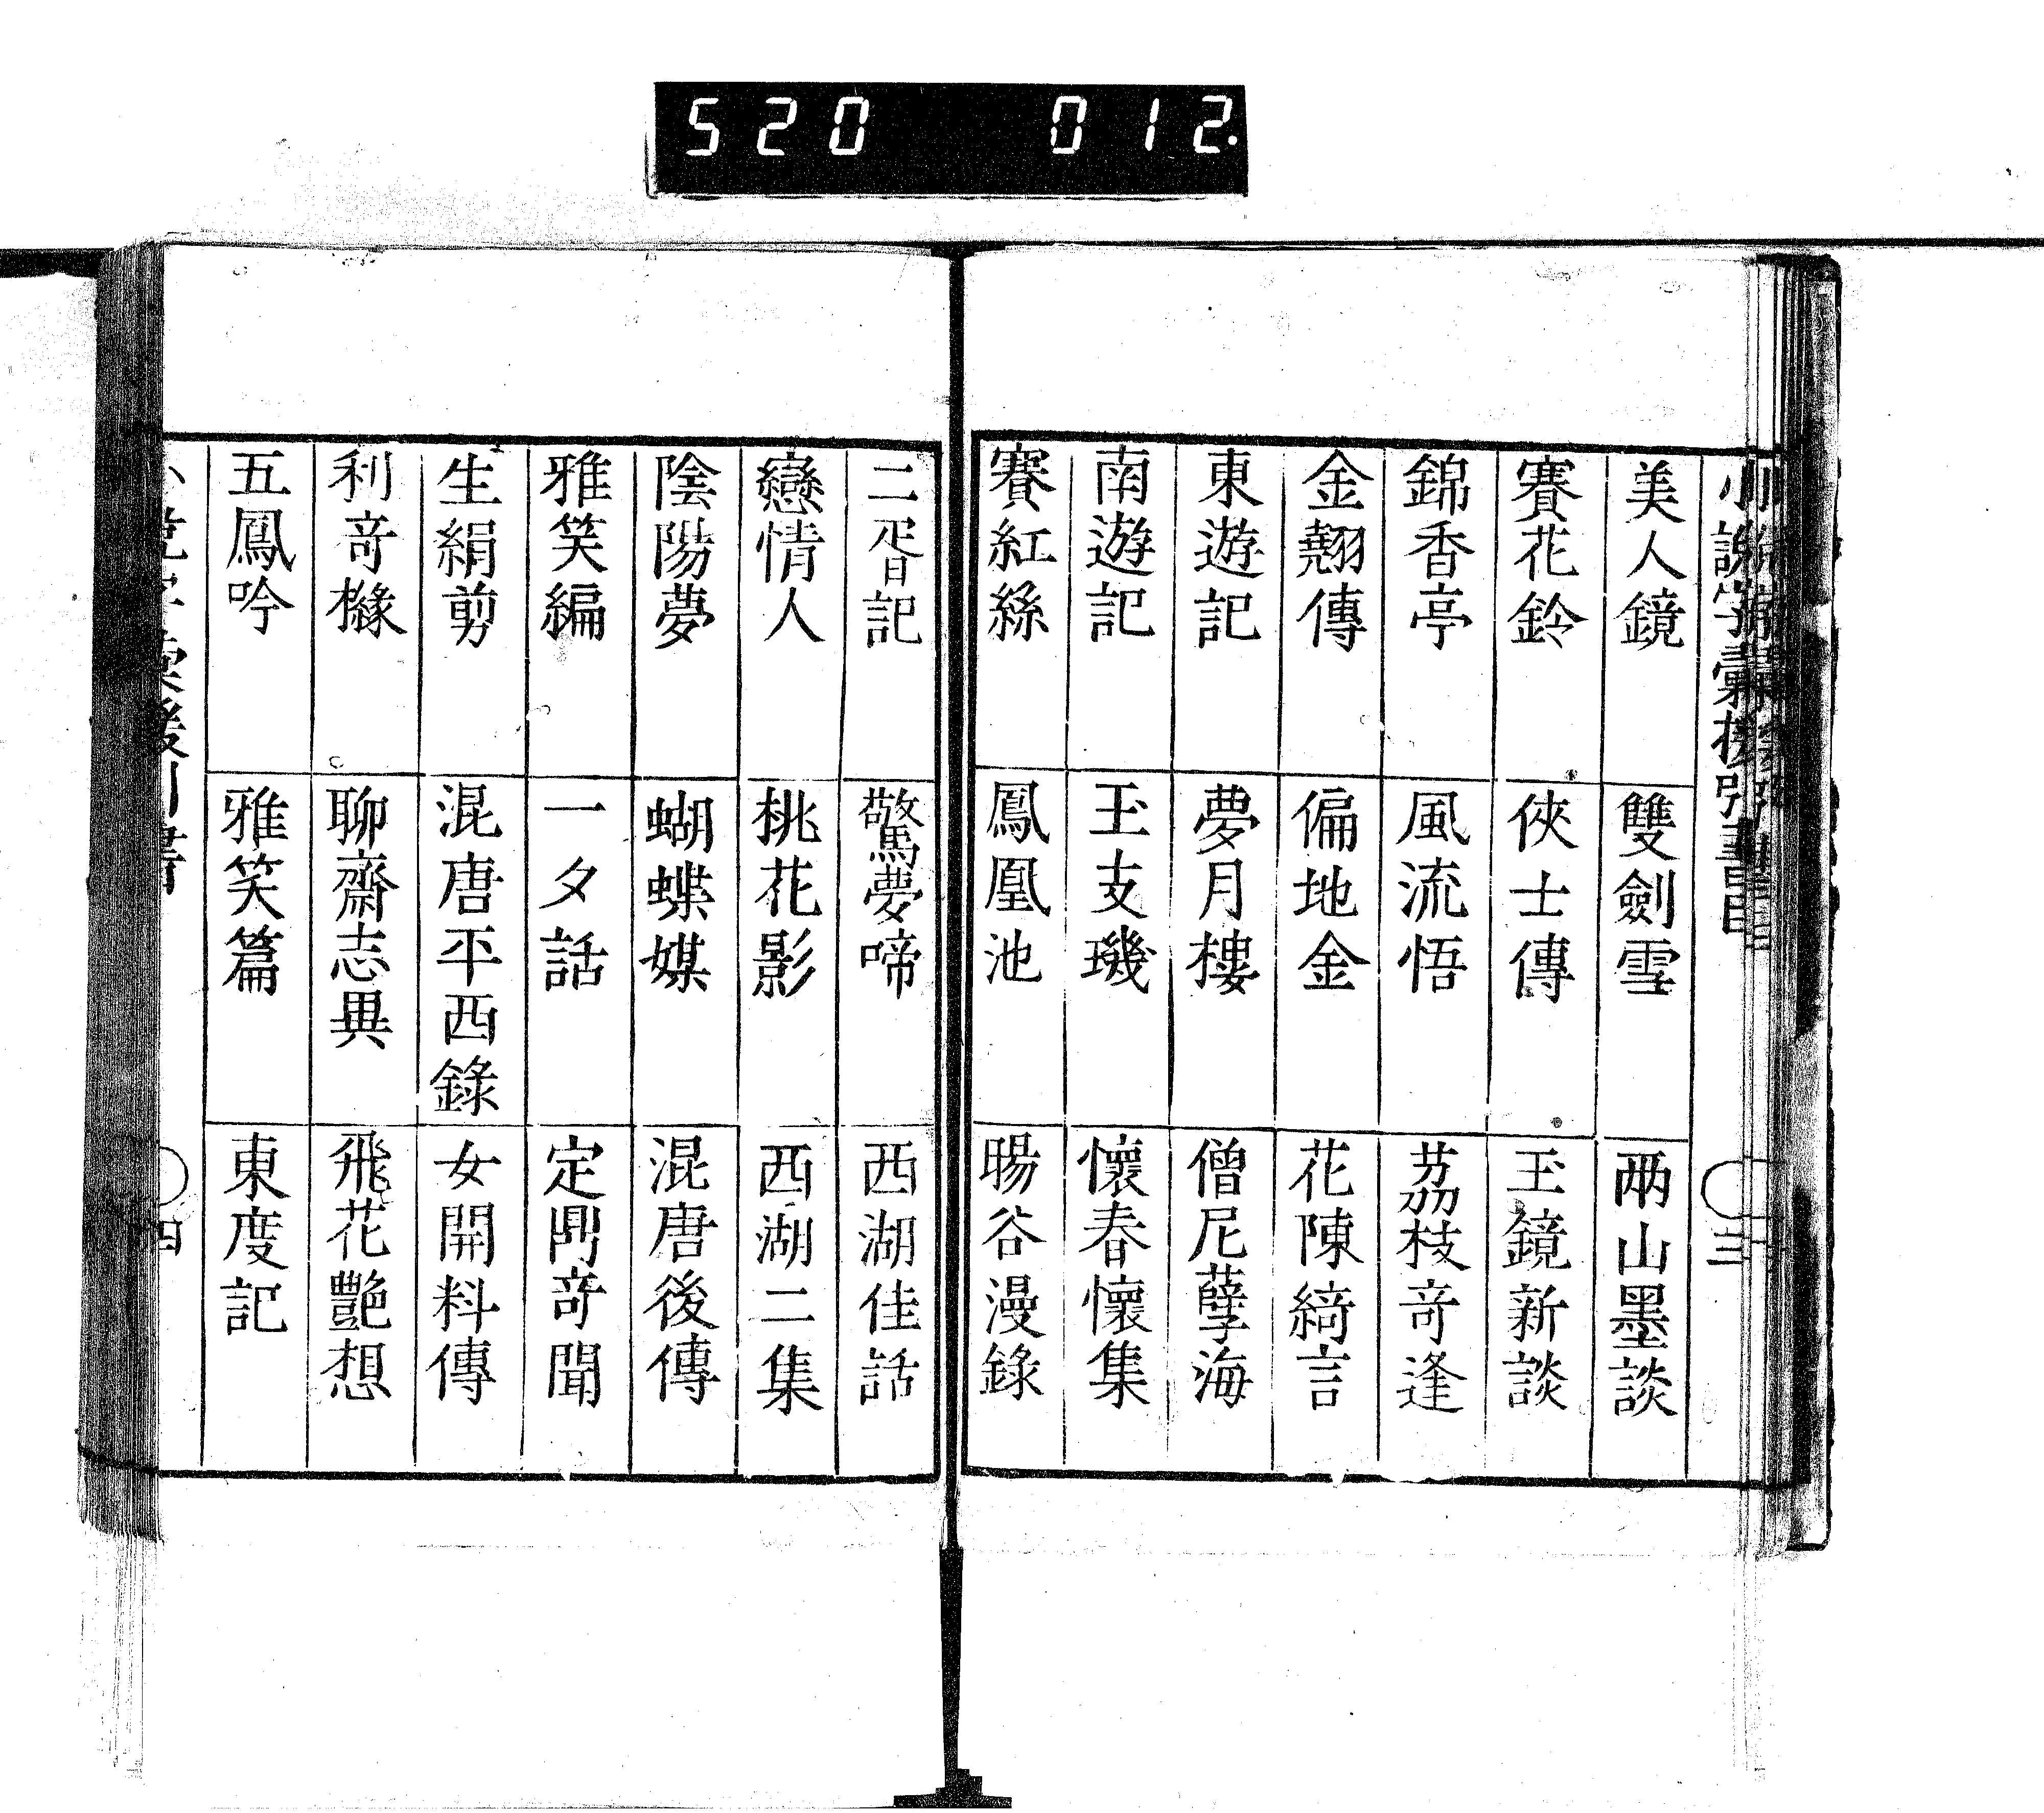 520 012
小說字彙援引書
三
美人鏡 雙劍雪 兩山墨談
賽花鈴 俠士傳 玉鏡新談
錦香亭 風流悟 荔枝奇逢
金翹傳 偏地金 花陳綺言
東遊記 夢月樓 僧尼孽海
南遊記 玉支璣 懷春懷集
賽紅絲 鳳凰池 暘谷漫錄
二胥記 驚夢啼 西湖佳話
戀情人 桃花影 西湖二集
陰陽夢 蝴蝶媒 混唐後傳
雅笑編 一夕話 定鼎奇聞
生絹剪 混唐平西錄 女開料傳
利奇櫞 聊齋志異 飛花艷想
五鳳吟 雅笑篇 東度記
四